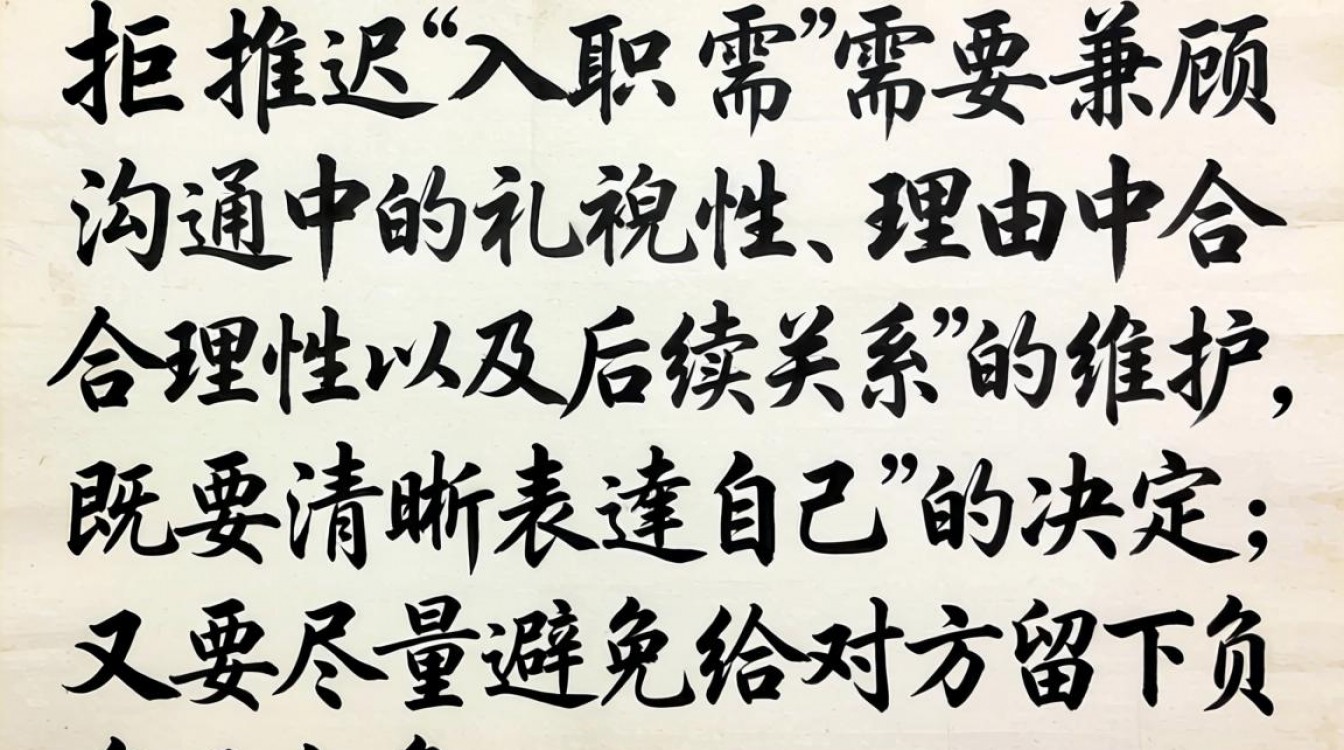 拒推迟“入职需”需要兼顾
沟通中的礼祝性、理由中合
合理性以及后续关系”的维护,
既要清晰表達自己”的决定;
又要尽量避免给对方留下负